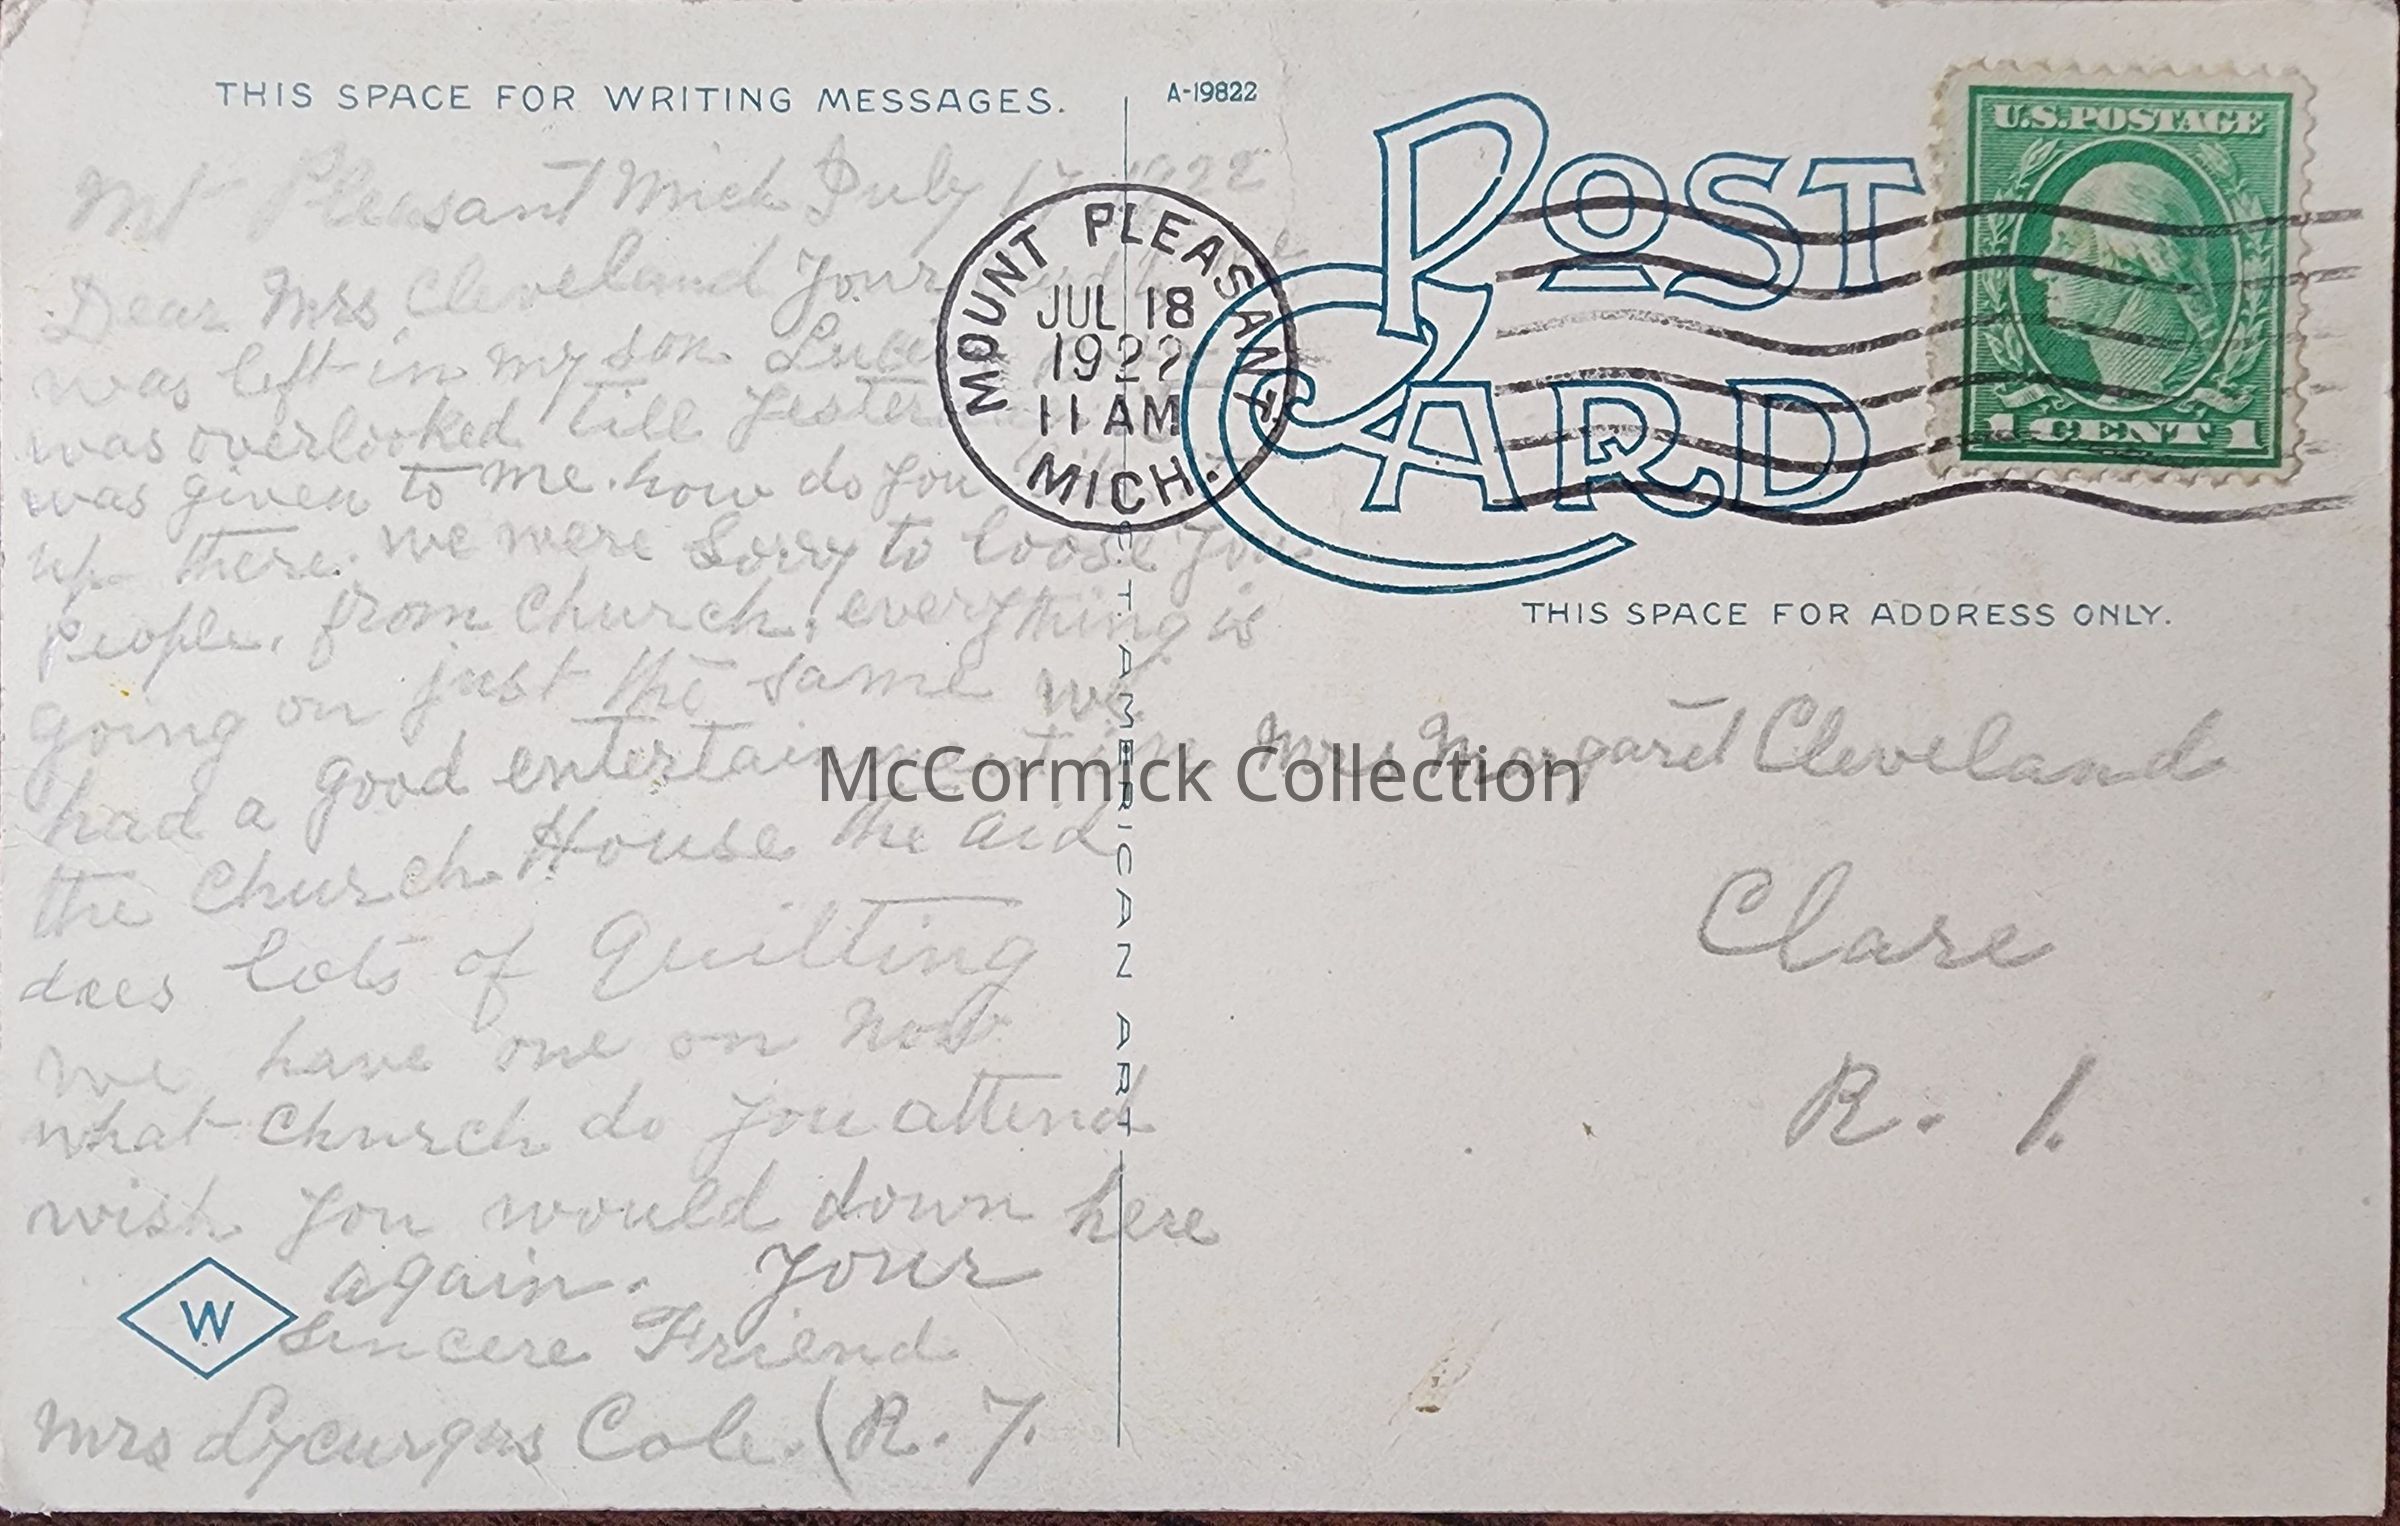 THIS SPACE FOR WRITING MESSAGES.
A-19822
Mt Pleasant Mich July 17 1922
Dear Mrs Cleveland Your
was left in my son
was overlooked till
was given to me. how do you
up there. we were sorry to loose you
People. from church. everything is
going on just the same we
had a good entertainment in
the church House the aid
does lots of Quilting
we have one on now
what church do you attend
wish you would down here
again. Your
Sincere Friend
Mrs Lycurgus Cole. (R. 7.
W
C.T. AMERICAN ART
MOUNT PLEASANT
JUL 18
1922
11 AM
MICH.
POST
CARD
U.S. POSTAGE
1 CENT 1
THIS SPACE FOR ADDRESS ONLY.
Mrs Margaret Cleveland
Clare
R. 1.
McCormick Collection